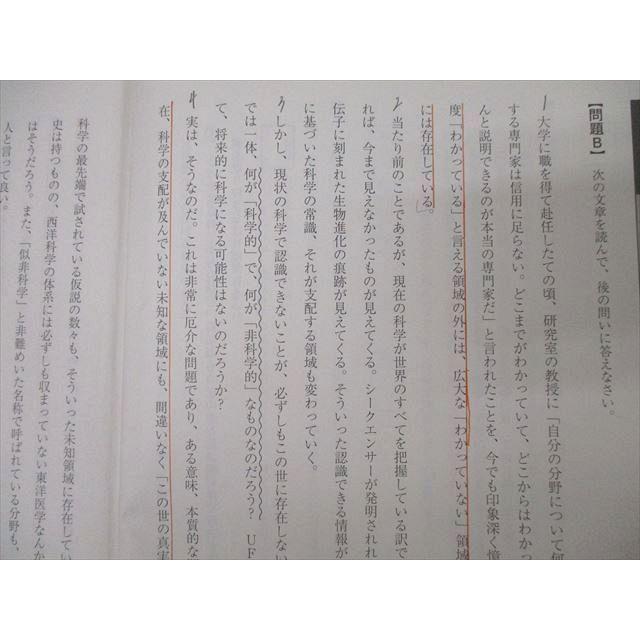 【問題B】 次の文章を読んで、後の問いに答えなさい。
1 大学に職を得て赴任したての頃、研究室の教授に「自分の分野について何
する専門家は信用に足らない。どこまでがわかっていて、どこからはわかっ
んと説明できるのが本当の専門家だ」と言われたことを、今でも印象深く憶
度「わかっている」と言える領域の外には、広大な「わかっていない」領域
には存在している。
2 当たり前のことであるが、現在の科学が世界のすべてを把握している訳で
れば、今まで見えなかったものが見えてくる。シークエンサーが発明されれ
伝子に刻まれた生物進化の痕跡が見えてくる。そういった認識できる情報が
に基づいた科学の常識、それが支配する領域も変わっていく。
3 しかし、現状の科学で認識できないことが、必ずしもこの世に存在しない
では一体、何が「科学的」で、何が「非科学的」なものなのだろう? UF
て、将来的に科学になる可能性はないのだろうか?
4 実は、そうなのだ。これは非常に厄介な問題であり、ある意味、本質的な
在、科学の支配が及んでいない未知な領域にも、間違いなく「この世の真実
科学の最先端で試されている仮説の数々も、そういった未知領域に存在してい
史は持つものの、西洋科学の体系には必ずしも収まっていない東洋医学なんか
はそうだろう。また、「似非科学」と非難めいた名称で呼ばれている分野も、
人と言って良い。